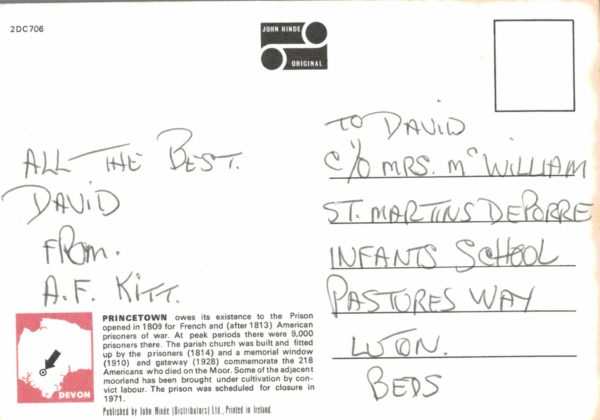 2DC706
JOHN HINDE
ORIGINAL
ALL THE BEST.
DAVID
FROM.
A.F. KITT.
TO DAVID
C/O MRS. Mc WILLIAM
ST. MARTINS DEPORRE
INFANTS SCHOOL
PASTURES WAY
LUTON.
BEDS
PRINCETOWN owes its existence to the Prison
opened in 1809 for French and (after 1813) American
prisoners of war. At peak periods there were 9,000
prisoners there. The parish church was built and fitted
up by the prisoners (1814) and a memorial window
(1910) and gateway (1928) commemorate the 218
Americans who died on the Moor. Some of the adjacent
moorland has been brought under cultivation by con-
vict labour. The prison was scheduled for closure in
1971.
DEVON
Published by John Hinde (Distributors) Ltd., Printed in Ireland.